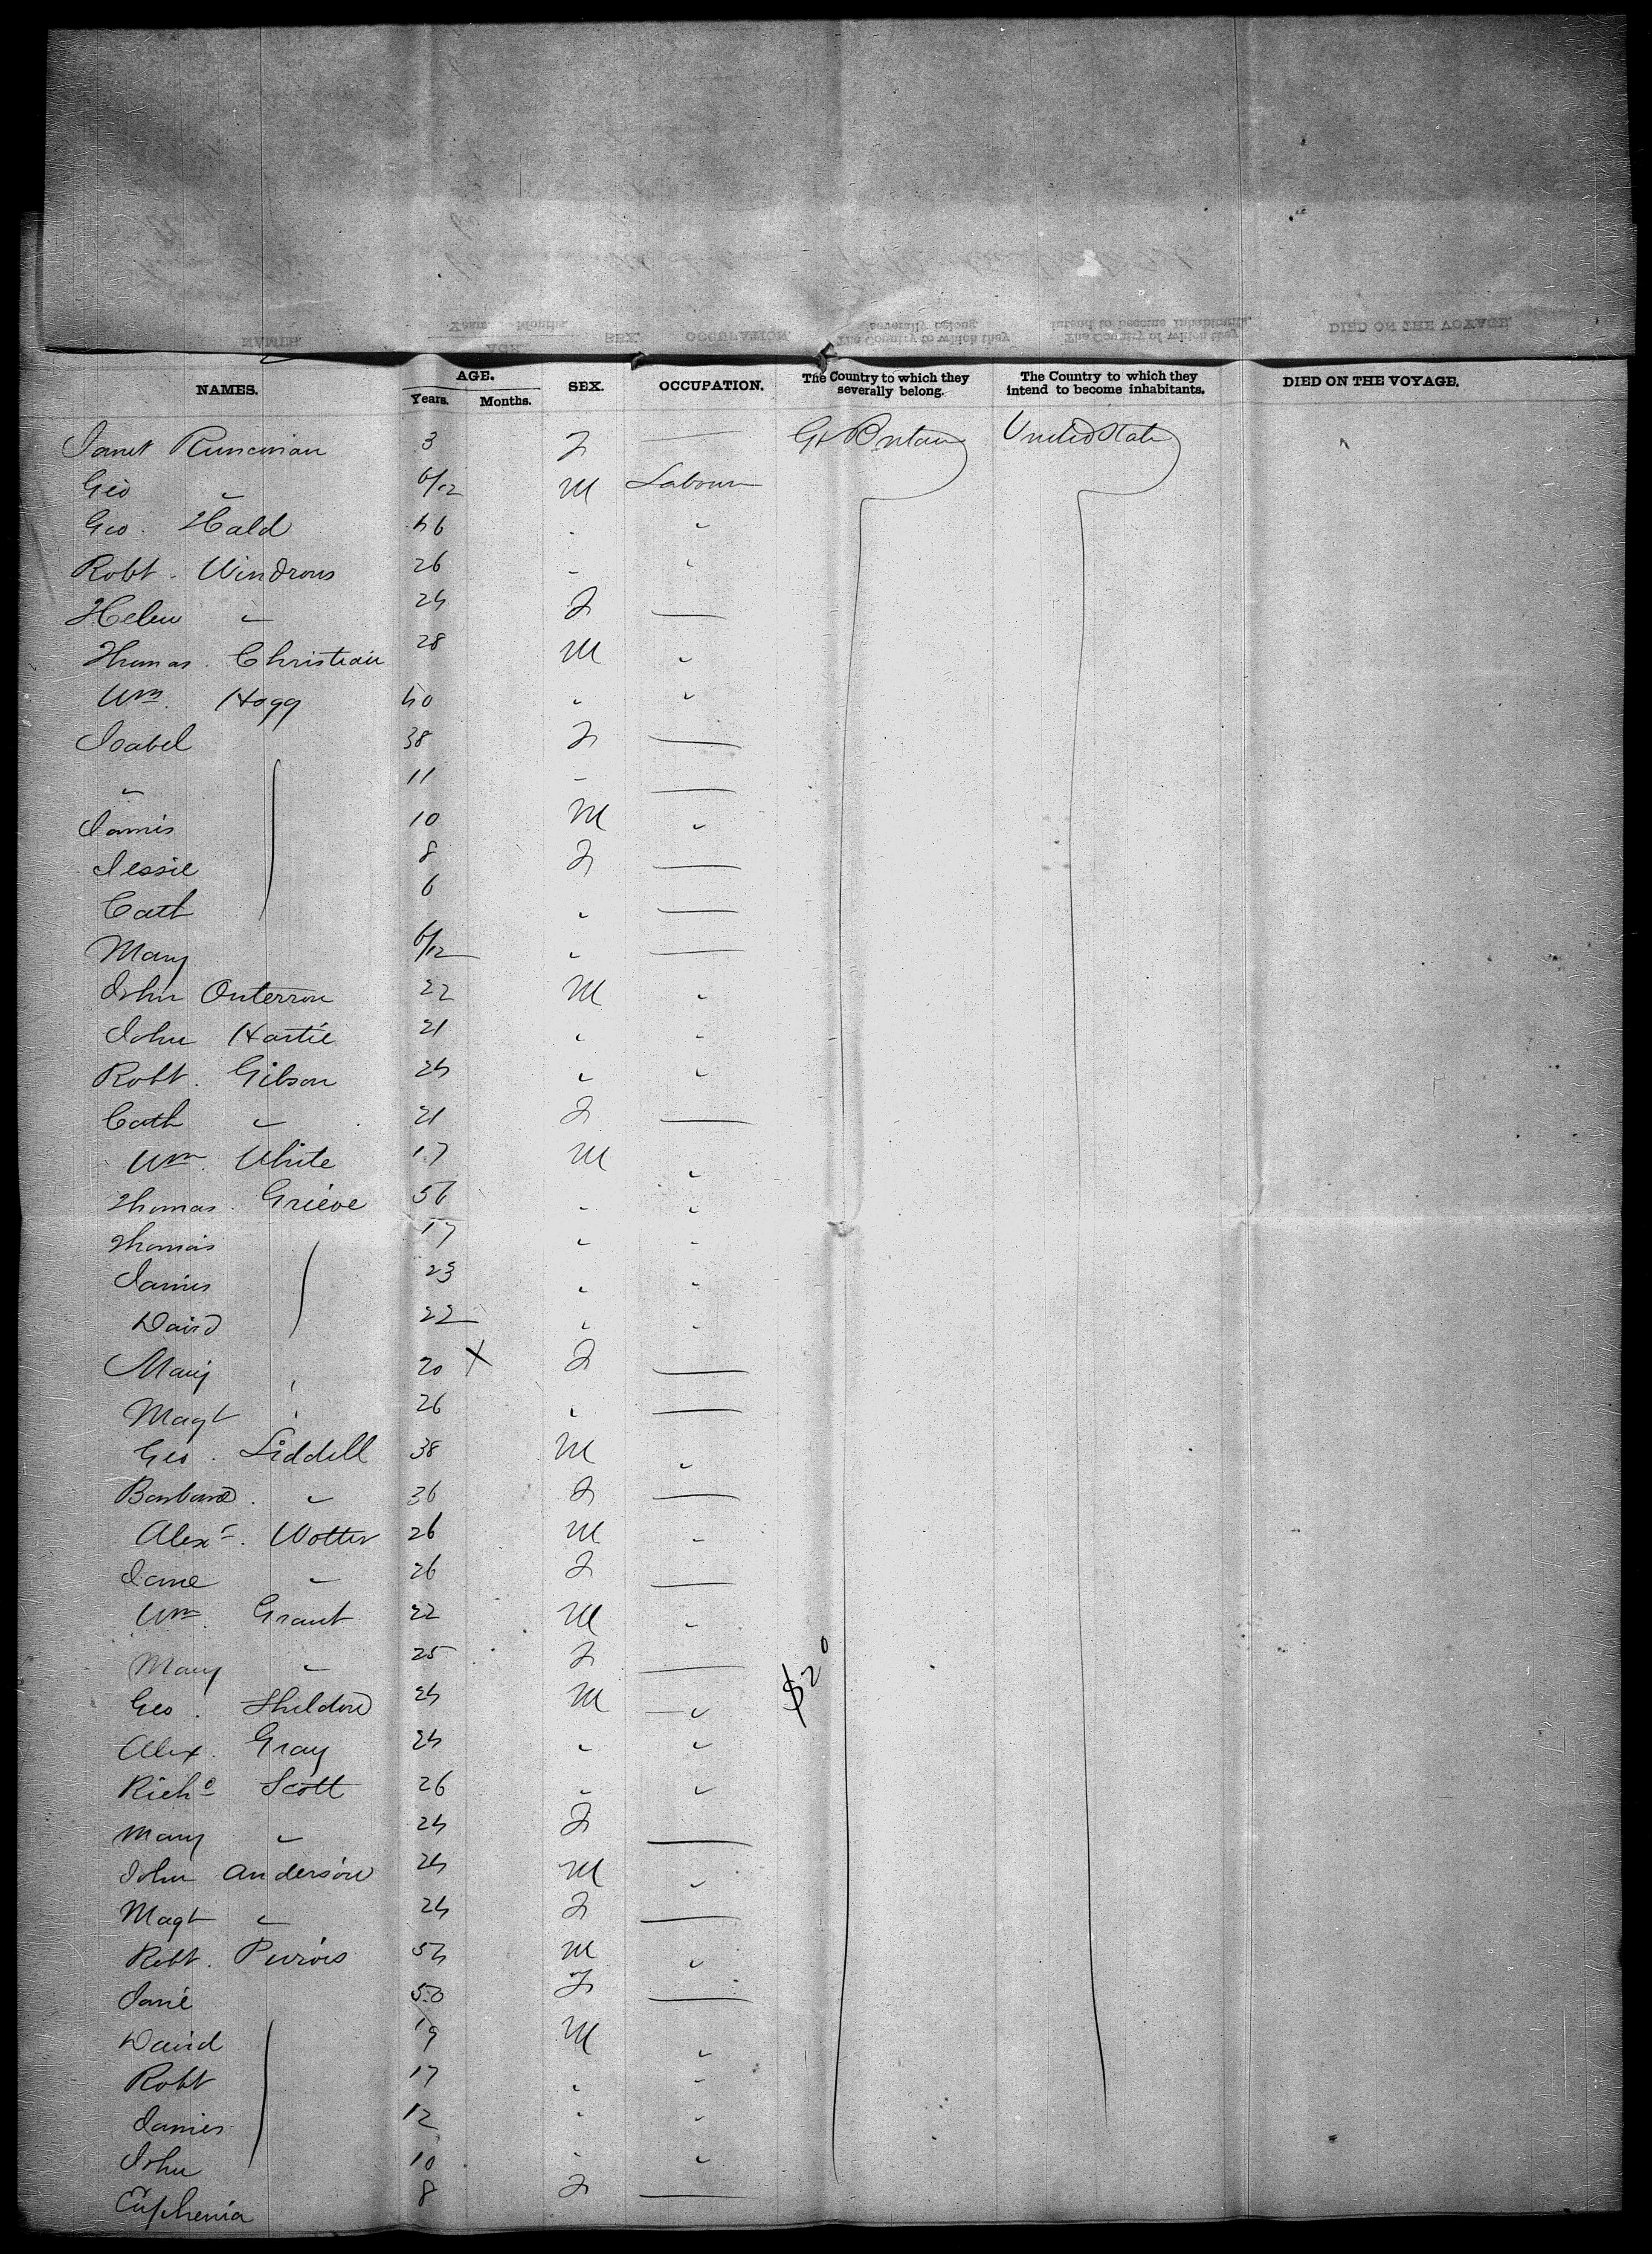 NAMES. AGE. Years. Months. SEX. OCCUPATION. The Country to which they severally belong. The Country to which they intend to become inhabitants. DIED ON THE VOYAGE.
Janet Runciman 3 F — Gt Britain United States
Geo " 6/12 M Labourer
Geo. Hald 46 " "
Robt. Windrous 26 " "
Helen " 24 F —
Thomas. Christian 28 M "
Wm. Hogg 40 " "
Isabel 38 F —
" 11 " —
James 10 M "
Jessie 8 F —
Cath 6 " —
Mary 6/12 " —
John Outerson 22 M "
John Hartie 21 " "
Robt. Gibson 24 " "
Cath " 21 F —
Wm. White 17 M "
Thomas. Grieve 56 " "
Thomas 17 " "
James 23 " "
David 22 " "
Mary " 20 X F —
Magt " 26 " —
Geo. Liddell 38 M "
Barbara. " 36 F —
Alexr. Wotter 26 M "
Jane " 26 F —
Wm. Grant 22 M "
Mary " 25 F —
Geo. Sheldon 24 M — " $20
Alex. Gray 24 " "
Richd Scott 26 " "
Mary " 24 F —
John Anderson 24 M "
Magt " 24 F —
Robt. Purvis 54 M "
Jane 50 F —
David 19 M "
Robt 17 " "
James 12 " "
John 10 " "
Euphenia 8 F —